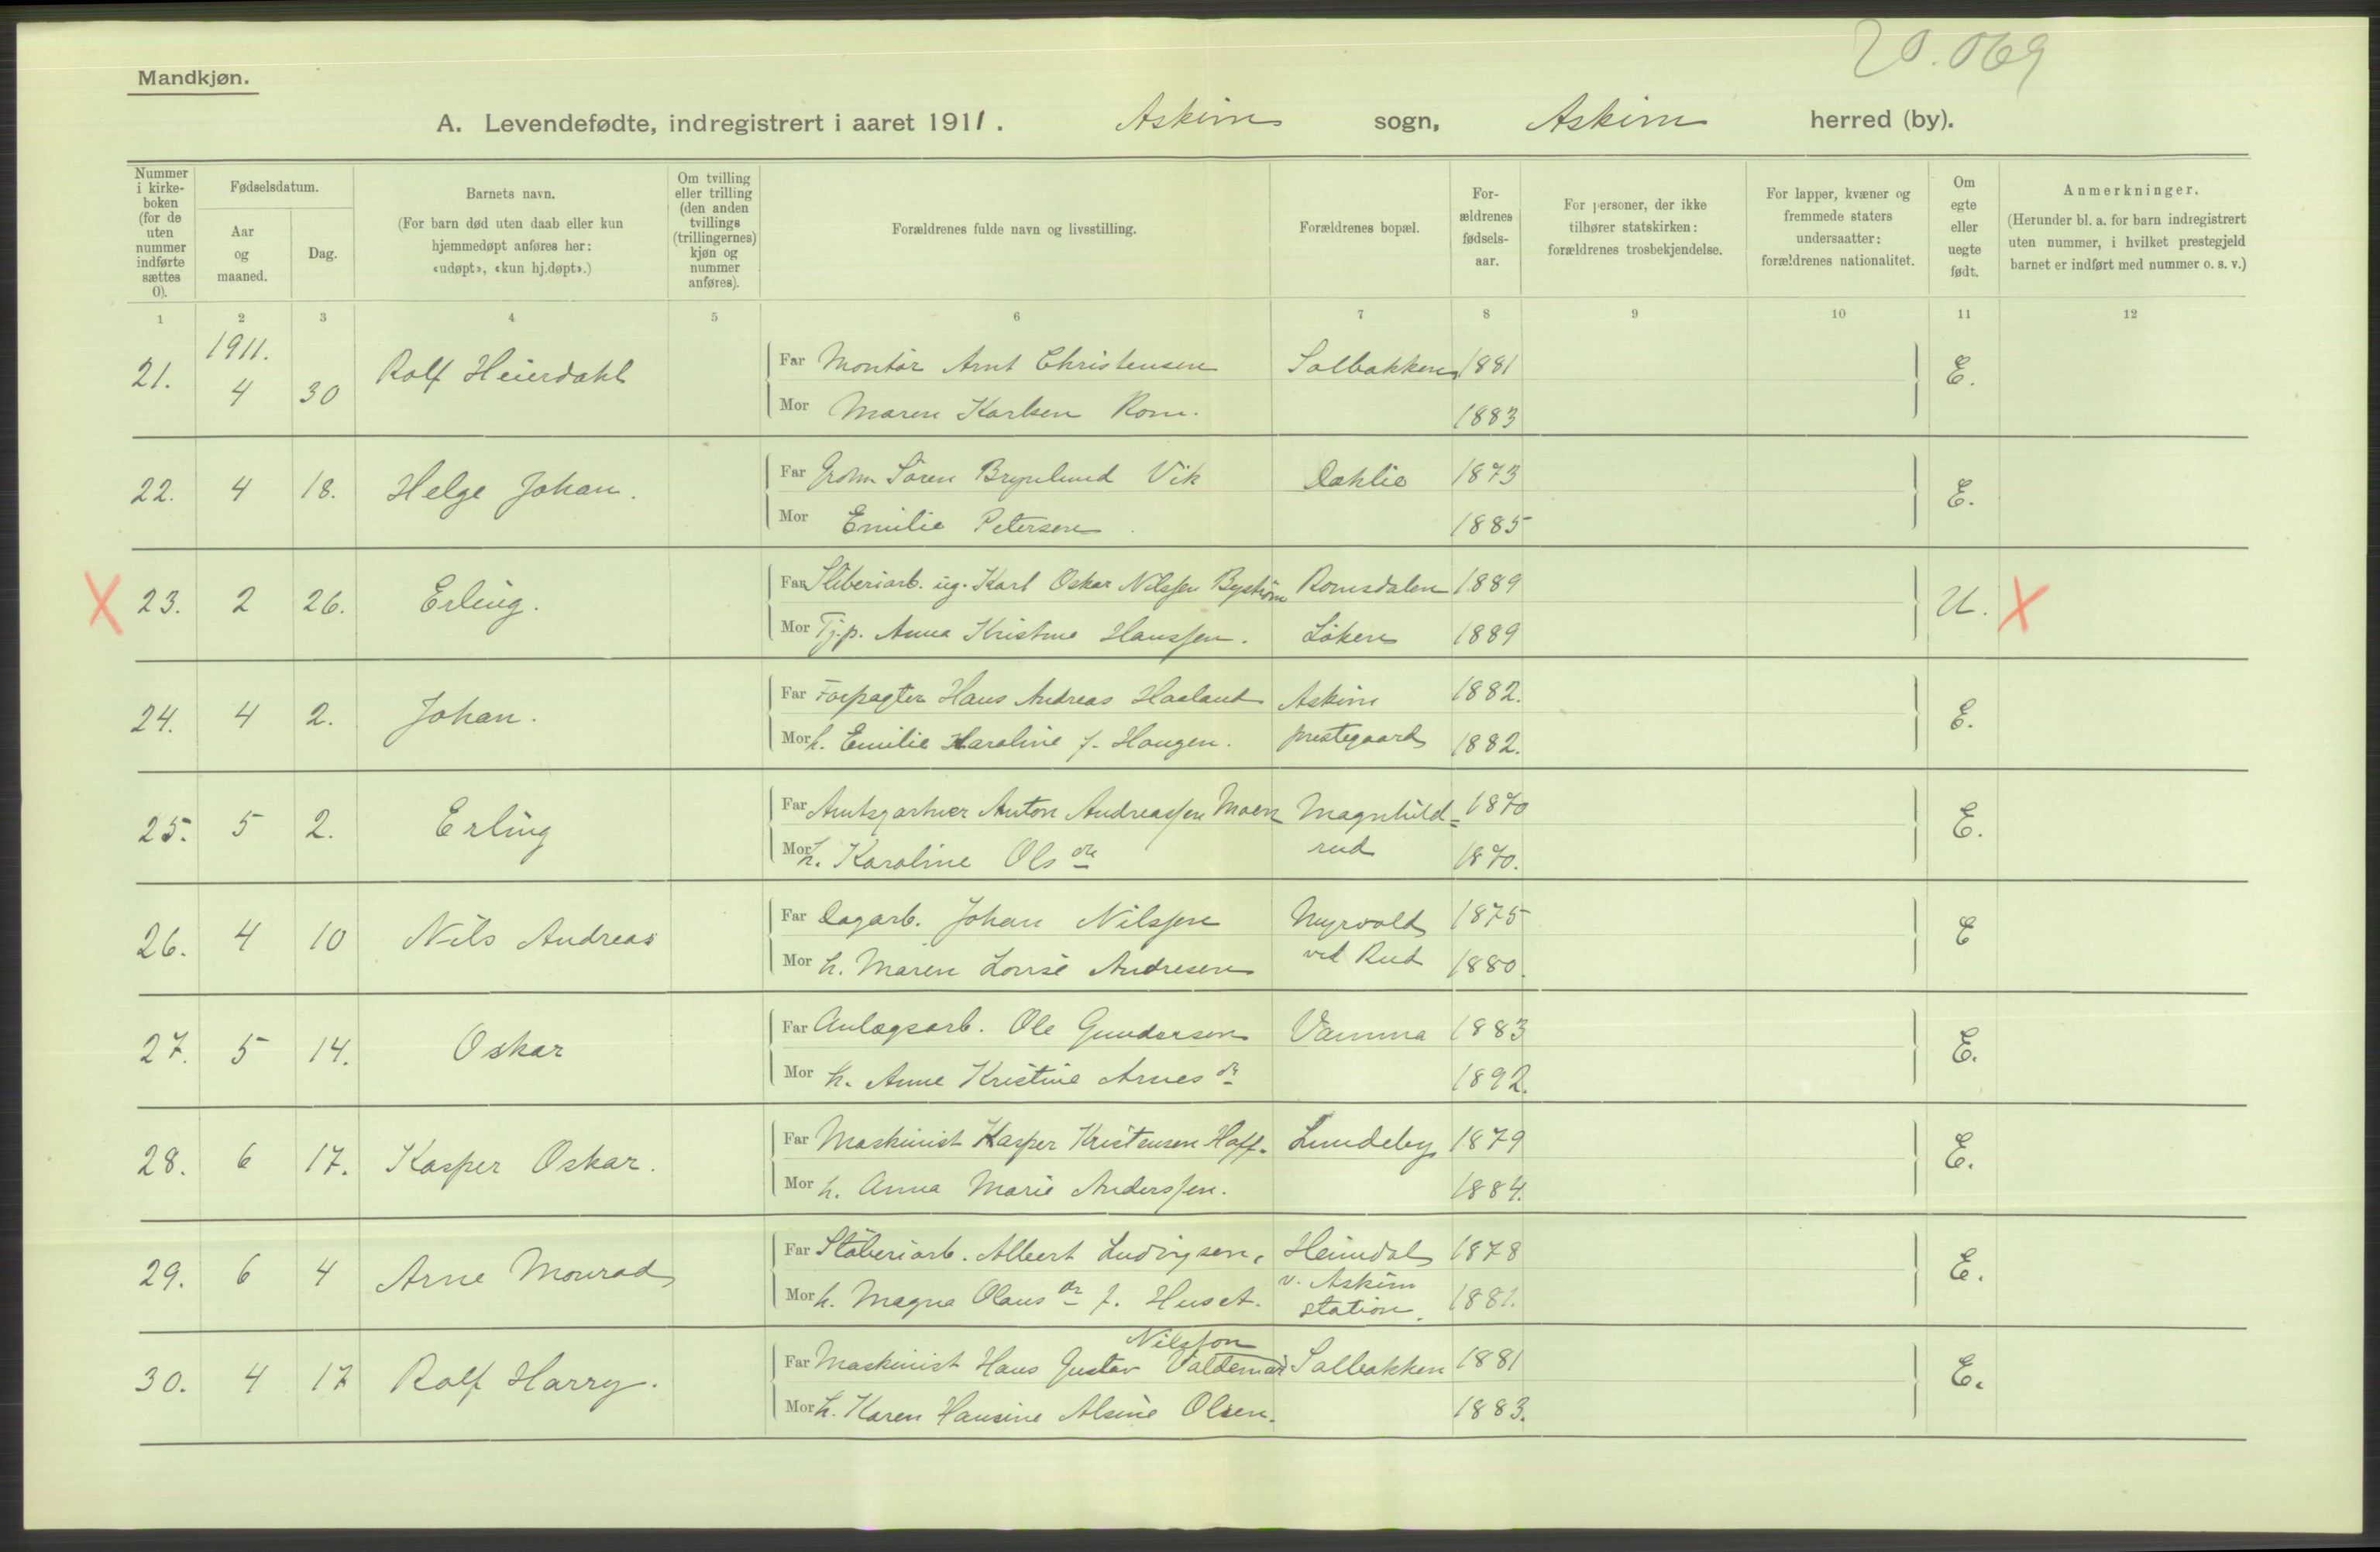 20.069
Mandkjøn.
A. Levendefødte, indregistrert i aaret 1911. Askim sogn, Askim herred (by).
Nummer i kirke-boken (for de uten nummer indførte sættes 0).
Fødselsdatum.
Aar og maaned.
Dag.
Barnets navn.
(For barn død uten daab eller kun hjemmedøpt anføres her: «udøpt», «kun hj.døpt».)
Om tvilling eller trilling (den anden tvillings (trillingernes) kjøn og nummer anføres).
Forældrenes fulde navn og livsstilling.
Forældrenes bopæl.
For-ældrenes fødsels-aar.
For personer, der ikke tilhører statskirken: forældrenes trosbekjendelse.
For lapper, kvæner og fremmede staters undersaatter: forældrenes nationalitet.
Om egte eller uegte født.
Anmerkninger.
(Herunder bl. a. for barn indregistrert uten nummer, i hvilket prestegjeld barnet er indført med nummer o. s. v.)
1 2 3 4 5 6 7 8 9 10 11 12
1911.
21. 4 30 Rolf Heierdahl Far Montør Arnt Christensen Solbakken 1881 E.
Mor Maren Karlsen Rom. 1883
22. 4 18. Helge Johan. Far Søren Brynlund Vik Dahlie 1873 E.
Mor Emilie Petersen 1885
X 23. 2 26. Erling. Far Sliberiarb. ug. Karl Oskar Nilssen Byström Romsdalen 1889 U. X
Mor Tj.p. Anna Kristine Hanssen. Løken 1889
24. 4 2. Johan. Far Forpagter Hans Andreas Haaland Askim 1882. E.
Mor h. Emilie Karoline f. Haugen. prestegaard 1882.
25. 5 2. Erling Far Amtsgartner Anton Andreassen Moen Magnhild- 1870 E.
Mor h. Karoline Olsdtr rud 1870.
26. 4 10 Nils Andreas Far Dagarb. Johan Nilssen Myrvold 1875 E
Mor h. Maren Lovise Andresen ved Rud 1880.
27. 5 14. Oskar Far Anlægsarb. Ole Gundersen Vamma 1883 E.
Mor h. Anne Kristine Arnesdr 1892.
28. 6 17. Kasper Oskar. Far Maskinist Kasper Kristensen Hoff. Lundeby 1879 E.
Mor h. Anna Marie Anderssen. 1884.
29. 6 4 Arne Monrad Far Sliberiarb. Albert Ludvigsen, Heimdal 1878 E.
v. Askim
Mor h. Magna Olausdr f. Huset. station. 1881.
Nilsson
30. 4 17 Rolf Harry. Far Maskinist Hans Gustav Valdemar Solbakken 1881 E.
Mor h. Karen Hansine Alsine Olsen. 1883.